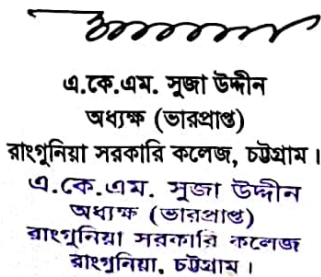 এ.কে.এম. সুজা উদ্দীন
অধ্যক্ষ (ভারপ্রাপ্ত)
রাংগুনিয়া সরকারি কলেজ, চট্টগ্রাম।
এ.কে.এম. সুজা উদ্দীন
অধ্যক্ষ (ভারপ্রাপ্ত)
রাংগুনিয়া সরকারি কলেজ
রাংগুনিয়া, চট্টগ্রাম।